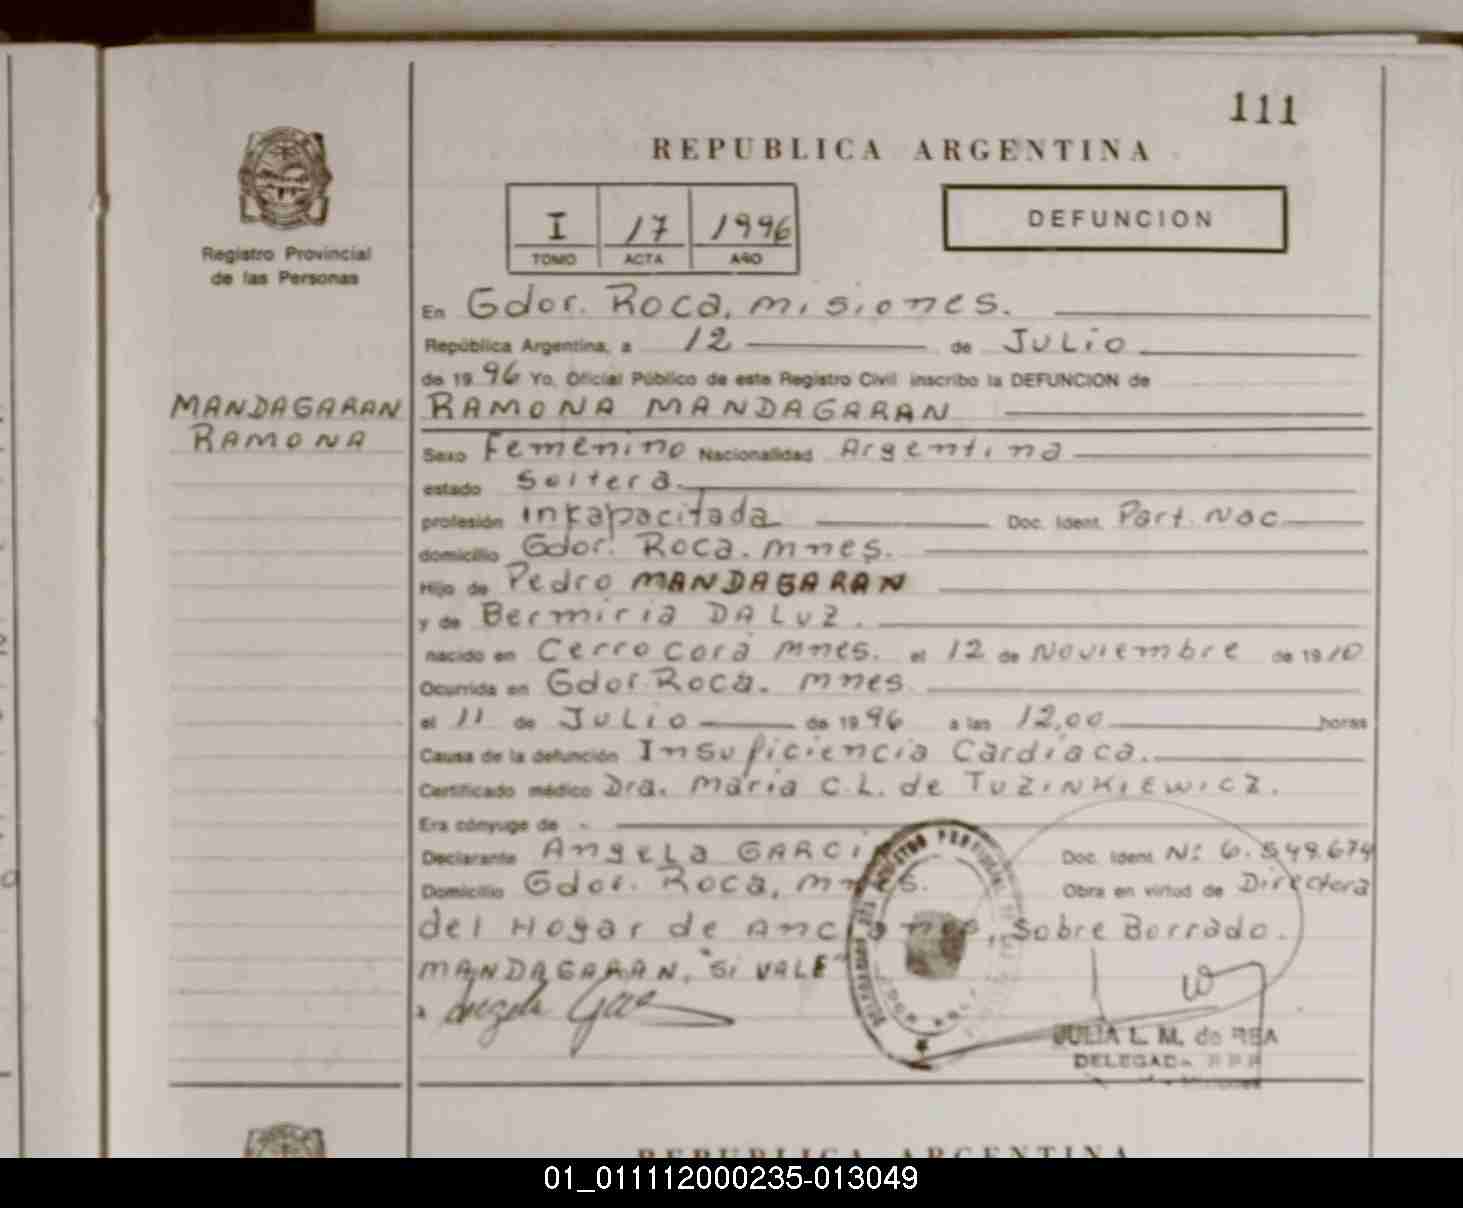 111
REPUBLICA ARGENTINA
I 17 1996
TOMO ACTA AÑO
DEFUNCION
Registro Provincial
de las Personas
MANDAGARAN
RAMONA
En Gdor. Roca, misiones.
República Argentina, a 12 de JULio
de 1996 Yo, Oficial Público de este Registro Civil inscribo la DEFUNCION de
RAMONA MANDAGARAN
Sexo Femenino Nacionalidad Argentina
estado Soltera
profesión inkapacitada Doc. Ident. Part. Nac
domicilio Gdor. Roca. mnes.
Hijo de Pedro MANDAGARAN
y de Bermiria DA LUZ.
nacido en Cerro Corá mnes. el 12 de Noviembre de 1910
Ocurrida en Gdor. Roca. mnes
el 11 de JULio de 1996 a las 12,00 horas
Causa de la defunción Insuficiencia Cardíaca.
Certificado médico Dra. Maria C.L. de TUZINKIEWICZ.
Era cónyuge de -
Declarante Angela GARCIA Doc. Ident. Nº 6.549.674
Domicilio Gdor. Roca, mnes. Obra en virtud de Directora
del Hogar de Ancianos, Sobre Borrado.
MANDAGARAN, "Si VALE"
JULIA L. M. de REA
DELEGADA
REPUBLICA ARGENTINA
01_011112000235-013049